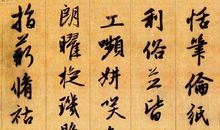 恬筆倫紙
利俗並皆
工嚬妍咲
朗曜旋璣
指薪脩祜